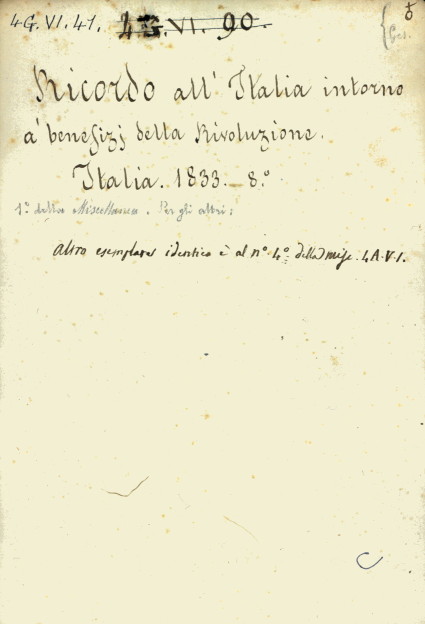 4G. VI. 41. 4 G. VI. 90.
Ricordo all' Italia intorno
a' benefizj della Rivoluzione.
Italia. 1833. 8.º
1º della Miscellanea. Per gli altri:
Altro esemplare identico è al nº 4º della Misc. 4.A.V.1.